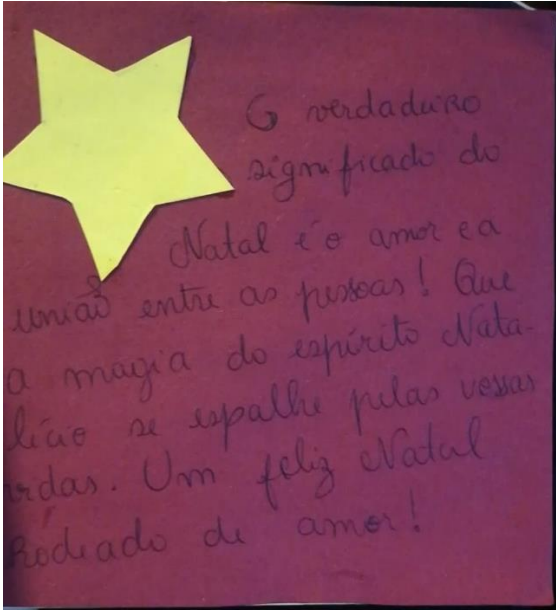 O verdadeiro
significado do
Natal é o amor e a
união entre as pessoas! Que
a magia do espírito Nata-
lício se espalhe pelas vossas
Um feliz Natal
Rodeado de amor!